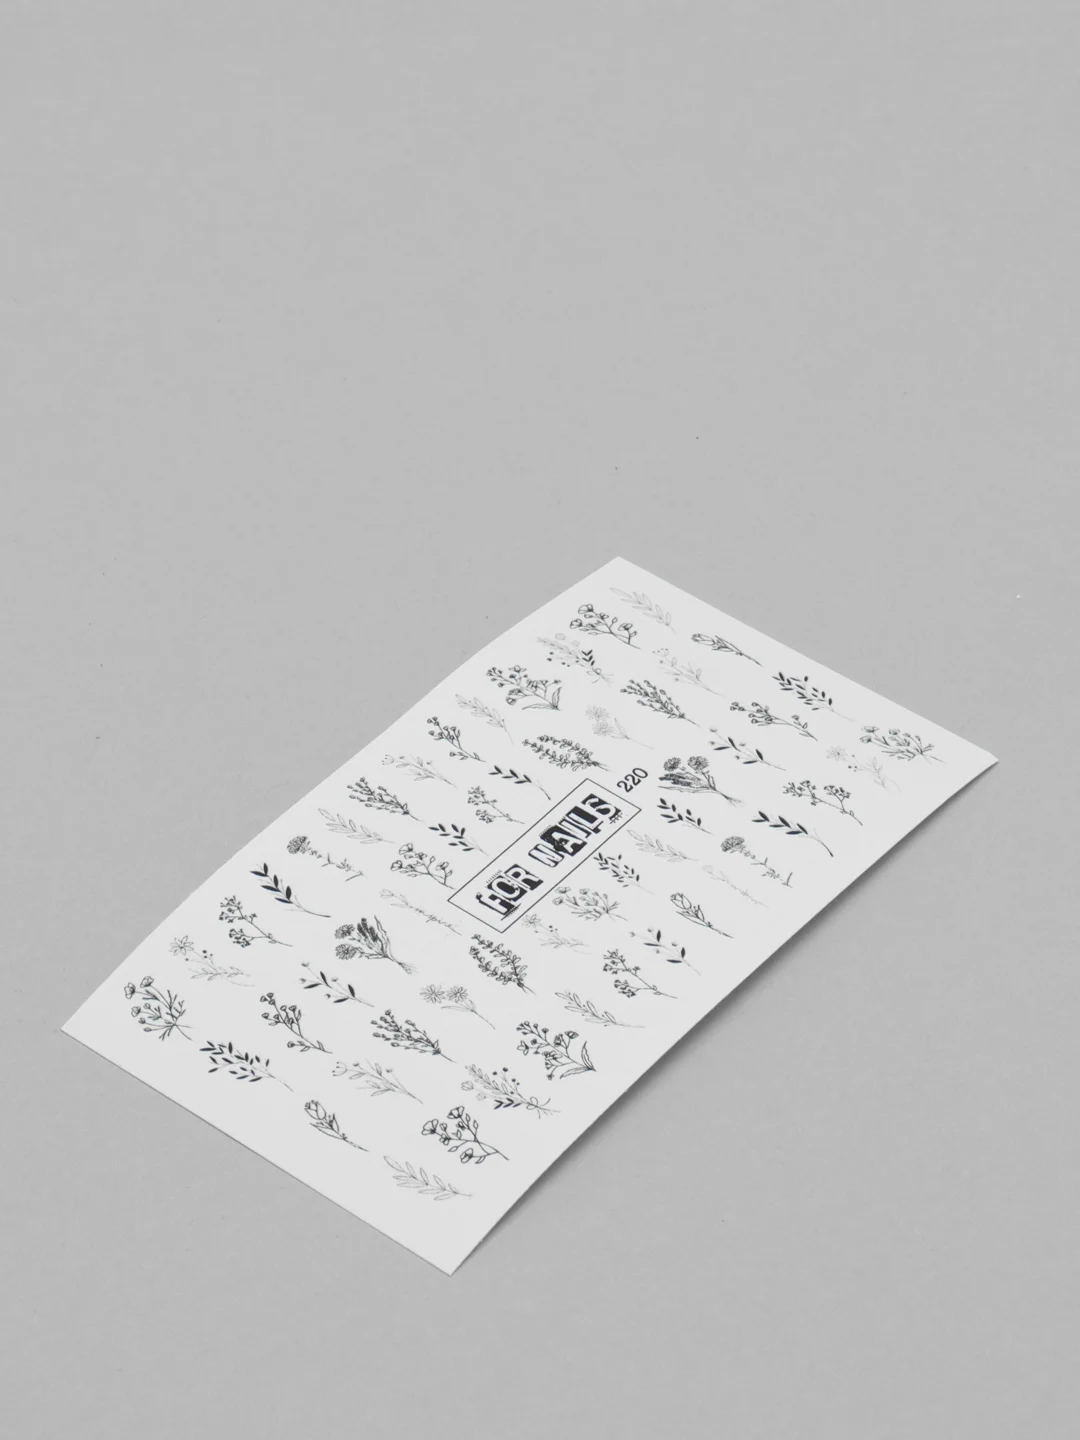 FOR NAILS
220